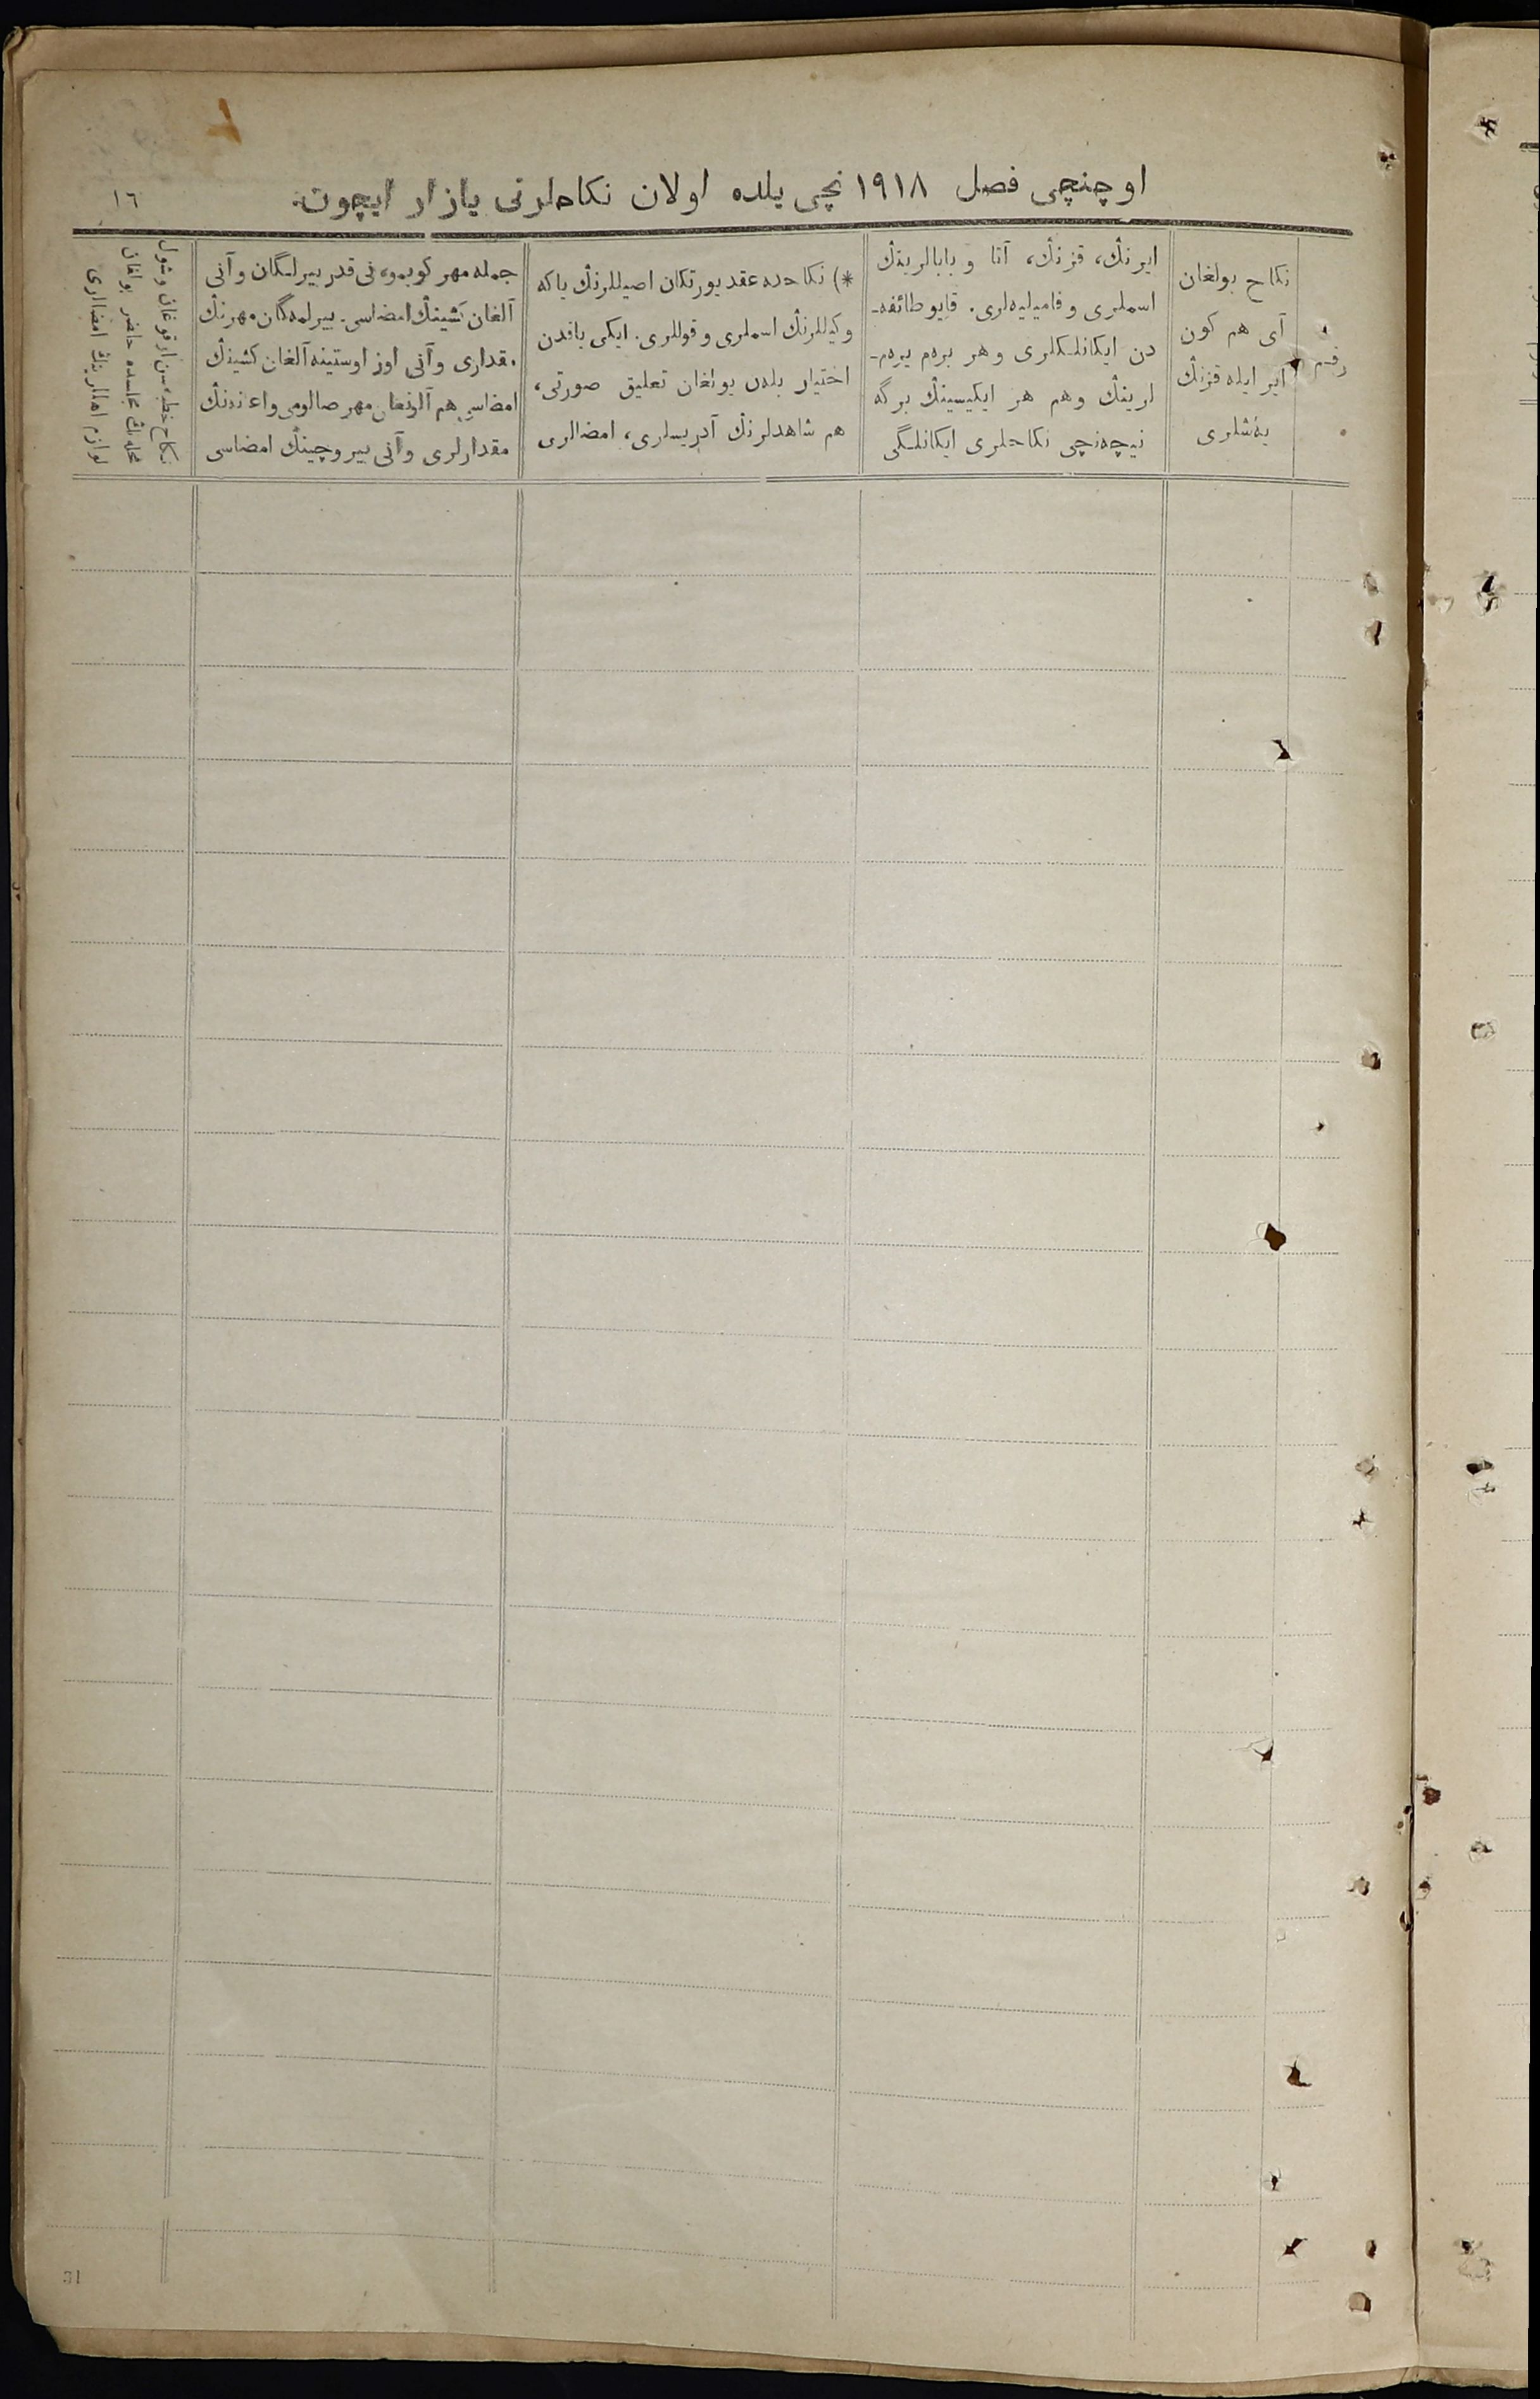 اوچنچی فصل ١٩١٨ نچی یلده اولان نکاحلرنی یازار ایچون.
١٦
رقم
نکاح بولغان
آی هم کون
ایر ایله قزنڭ
یەشلری
ایرنڭ، قزنڭ، آتا و بابالرینڭ
اسملری و فامیلیەلری. قایو طائفه‌-
دن ایکانلکلری و هر برەم یرەم-
لرینڭ وهم هر ایکیسینڭ برگه
نیچه‌نچی نکاحلری ایکانلگی
*) نکاحده عقد یورتکان اصیللرنڭ یاکه
وکیللرنڭ اسملری و قوللری. ایکی یاقدن
اختیار بلەن بولغان تعلیق صورتی،
هم شاهدلرنڭ آدریسلری، امضالری
جمله مهر کوبمو، نی قدر بیرلگان و آنی
آلغان کشینڭ امضاسی. بیرلمەگان مهرنڭ
مقداری و آنی اوز اوستینه آلغان کشینڭ
امضاسی هم آلونغان مهر صالومی و اعانەنڭ
مقدارلری و آنی بیروچینڭ امضاسی
نکاح خطبەسن اوقوغان و شول
محلەنڭ مجلسده حاضر بولغان
لوازم اهللرینڭ امضالری
31